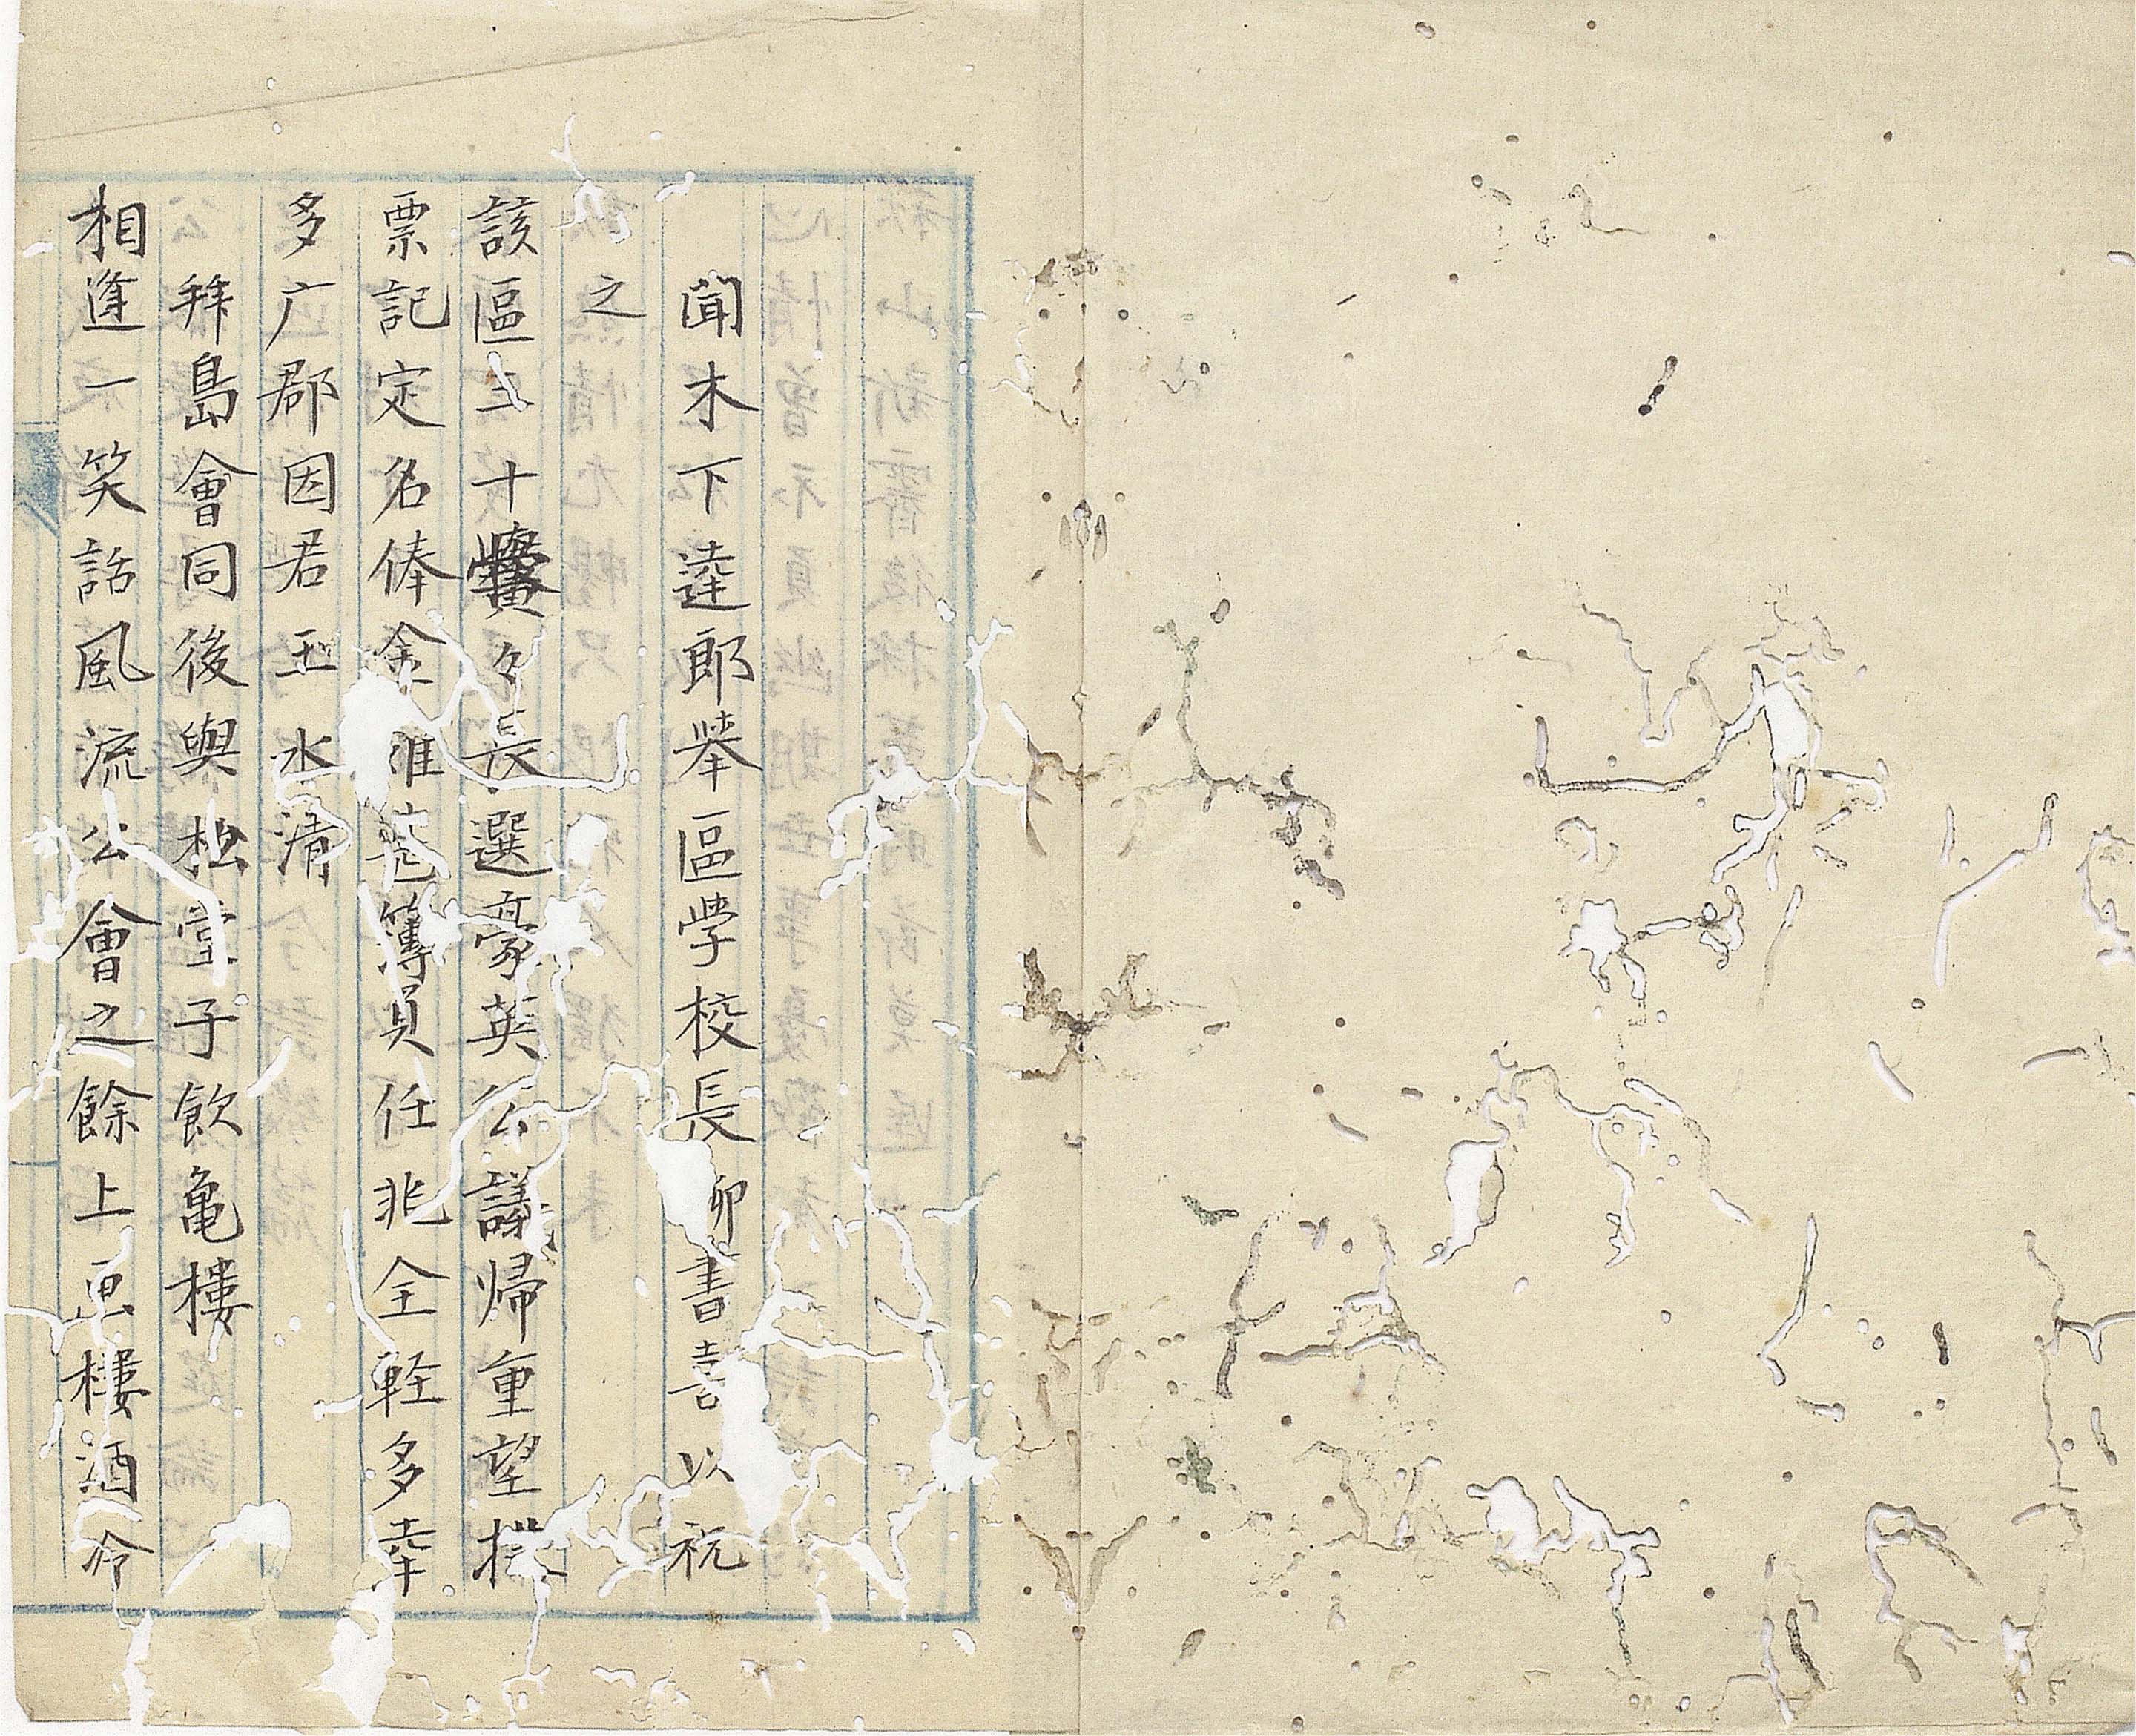 聞木下逵郎挙区学校長卯書喜以祝
之
該區三十黌々長選豪英公議帰重望撰
票記定名俸金准巻簿員任非全軽多幸
多广郡因君玉水清
拜島會同後與松堂子飲亀楼
相逢一笑話風流公會之餘上画楼酒冷